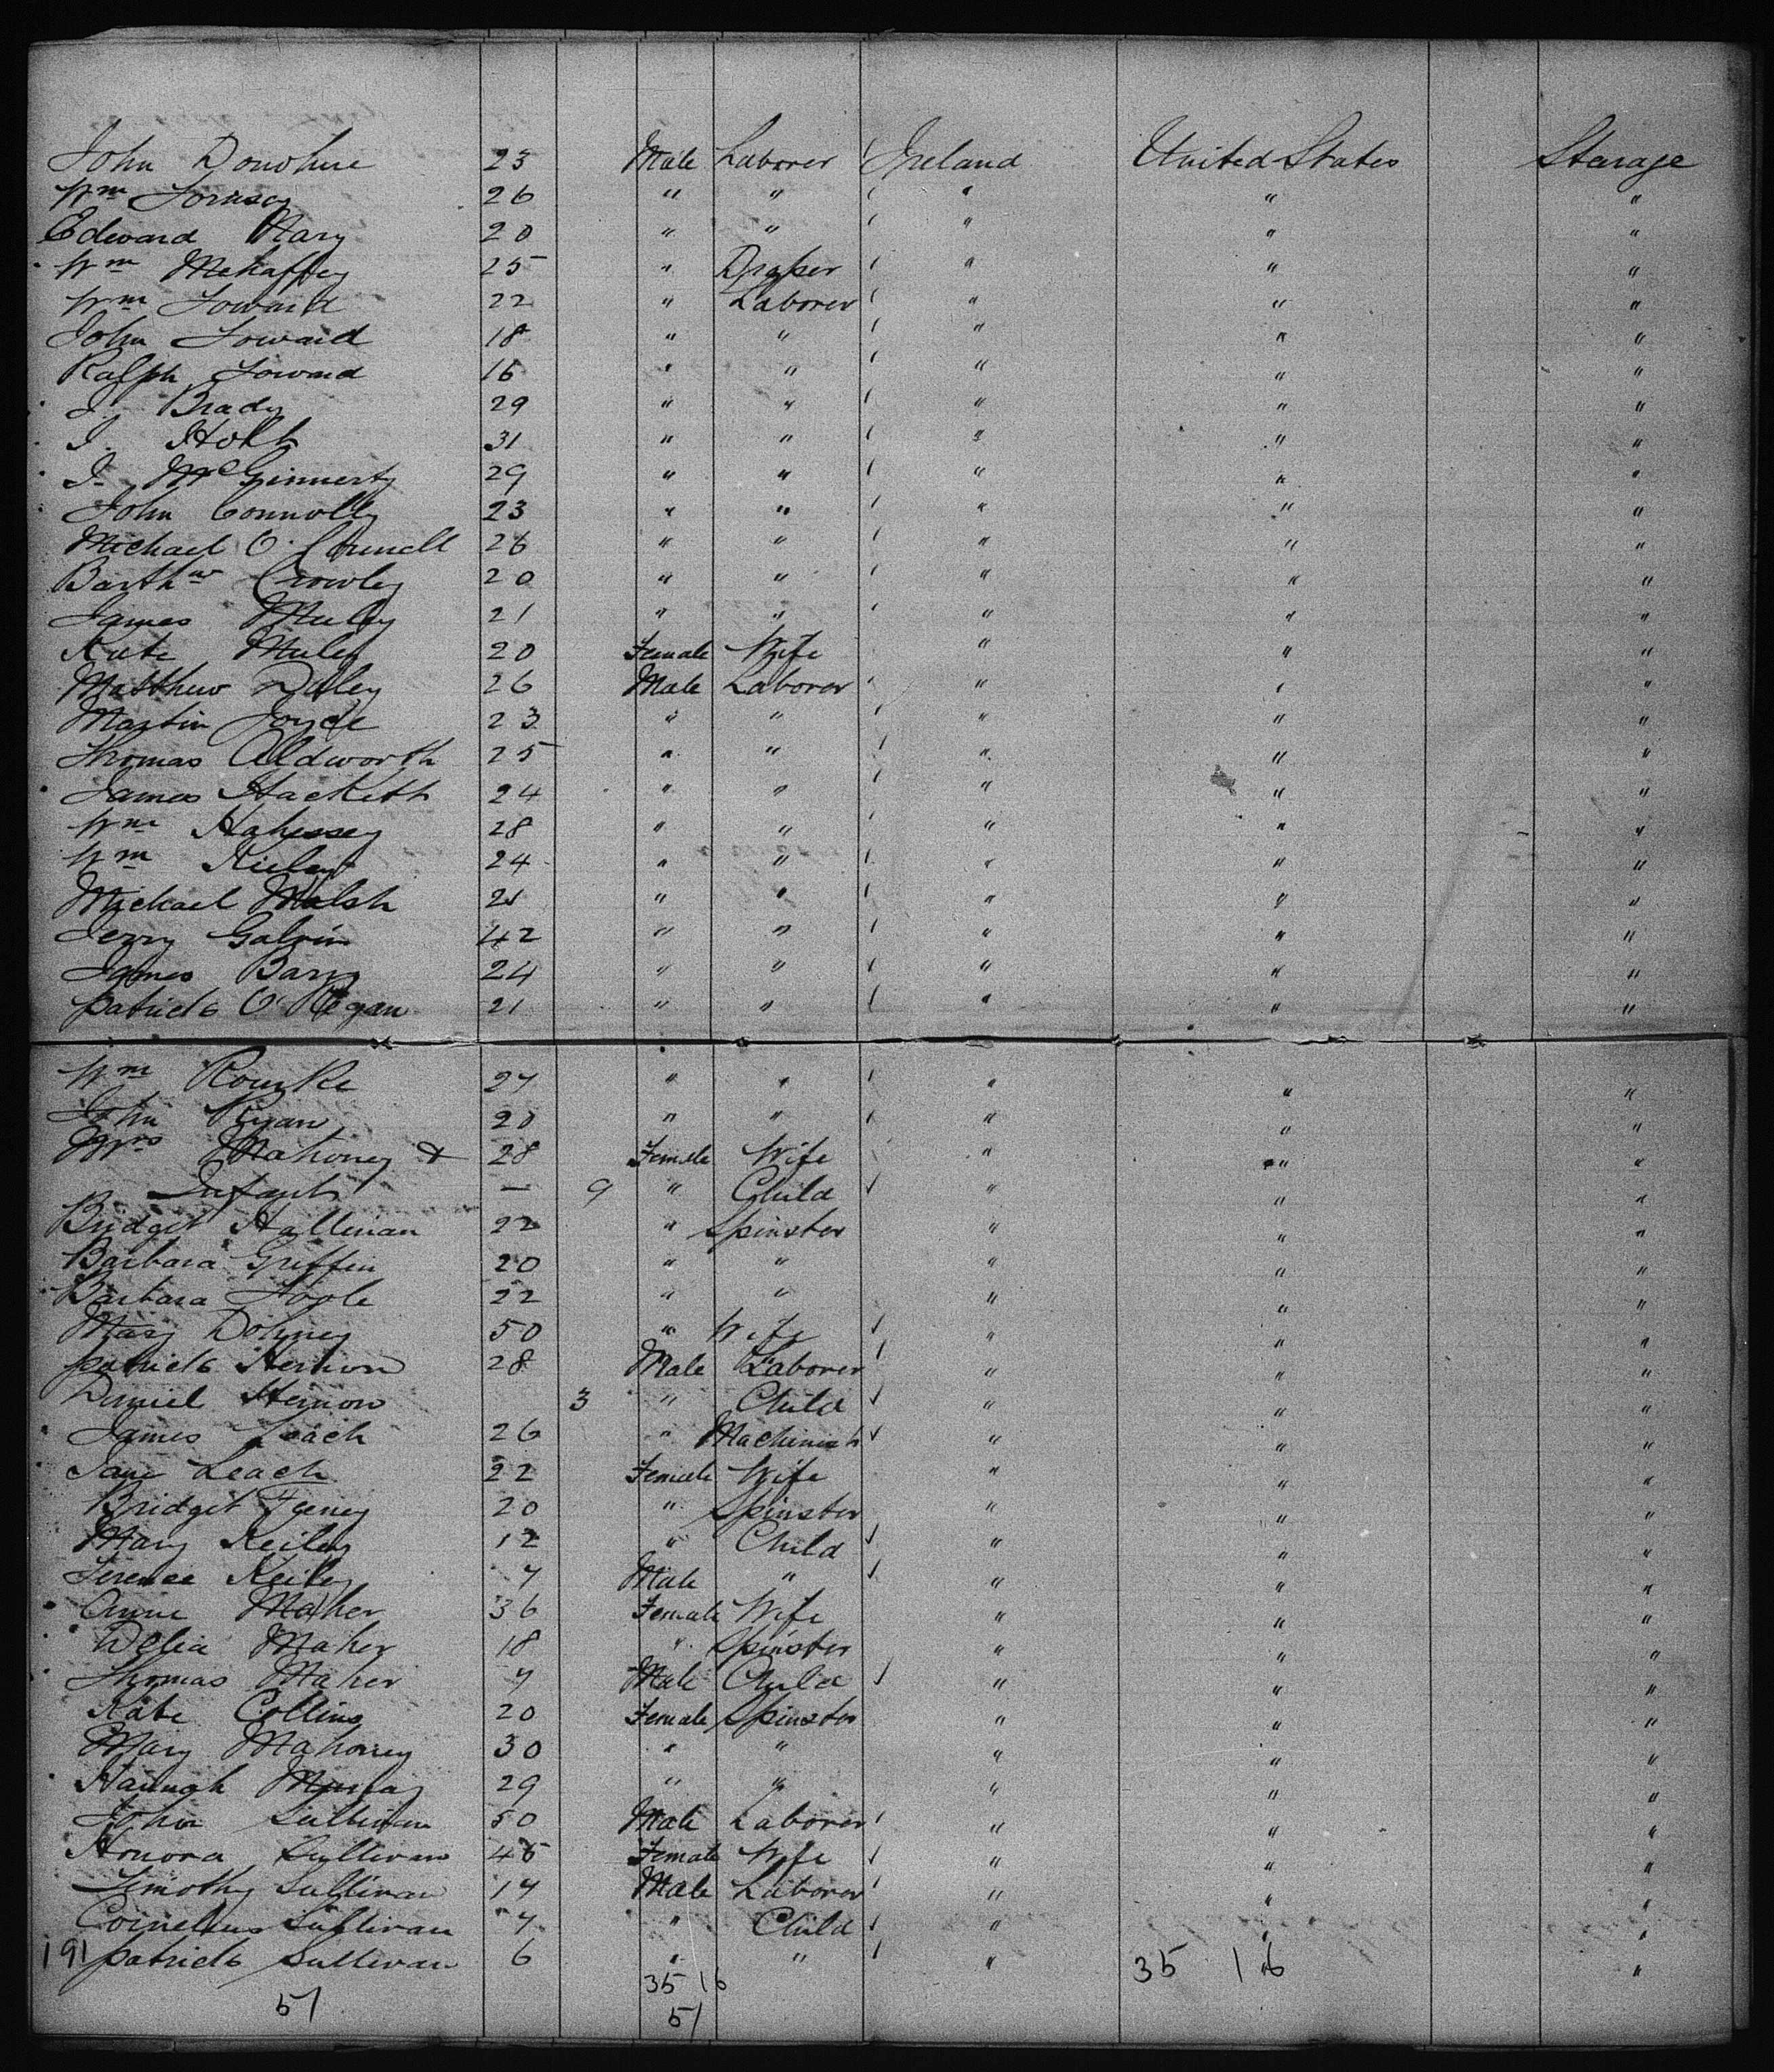 John Donohue 23 Male Laborer Ireland United States Starage
Wm 26 " " " " "
Edward 20 " " " " "
Wm Mehaffey 25 " Draper " " "
Wm Howard 22 " Laborer " " "
John Howard 18 " " " " "
Ralph Howard 16 " " " " "
J. Brady 29 " " " " "
J. Holt 31 " " " " "
J. McGinnerty 29 " " " " "
John Connolly 23 " " " " "
Michael O. 26 " " " " "
Barthw Crowley 20 " " " " "
James 21 " " " " "
Kate 20 Female Wife " " "
Matthew Daley 26 Male Laborer " " "
Martin Joyce 23 " " " " "
Thomas Aldworth 25 " " " " "
James Hackett 24 " " " " "
Wm Hahessey 28 " " " " "
Wm Kieley 24 " " " " "
Michael Walsh 21 " " " " "
Jerry Galvin 42 " " " " "
James Barry 24 " " " " "
Patrick O'Regan 21 " " " " "
Wm Rourke 27 " " " " "
John Ryan 20 " " " " "
Mrs Mahoney & 28 Female Wife " " "
Infant — 9 " Child " " "
Bridget Hallinan 22 " Spinster " " "
Barbara Griffin 20 " " " " "
Barbara Toole 22 " " " " "
Mary Dohney 50 " Wife " " "
Patrick Hernon 28 Male Laborer " " "
Daniel Hernon 3 " Child " " "
James Leach 26 " Machinist " " "
Jane Leach 22 Female Wife " " "
Bridget Feeney 20 " Spinster " " "
Mary Keiley 12 " Child " " "
Terence Keiley 7 Male " " " "
Anne Maher 36 Female Wife " " "
Delia Maher 18 " Spinster " " "
Thomas Maher 7 Male Child " " "
Kate Collins 20 Female Spinster " " "
Mary Mahoney 30 " " " " "
Hannah Murray 29 " " " " "
John Sullivan 50 Male Laborer " " "
Honora Sullivan 45 Female Wife " " "
Timothy Sullivan 17 Male Laborer " " "
Cornelius Sullivan 7 " Child " " "
191 Patrick Sullivan 6 " " " " "
35 16 35 16
51 51